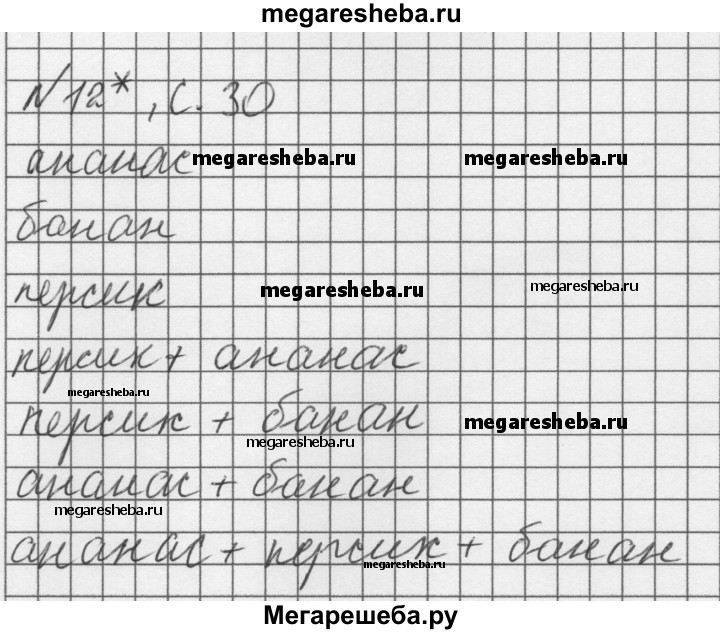 megaresheba.ru
N12*, с. 30
ананас megaresheba.ru megaresheba.ru
банан
персик megaresheba.ru megaresheba.ru
персик + ананас
megaresheba.ru
персик + банан megaresheba.ru
megaresheba.ru
ананас + банан
megaresheba.ru
ананас + персик + банан
megaresheba.ru
Мегарешеба.ру